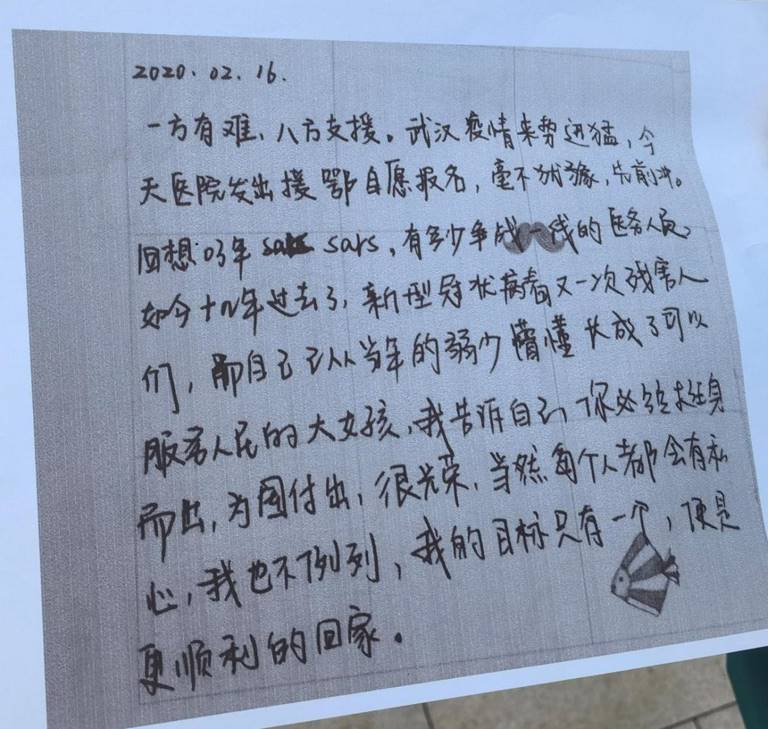 2020.02.16.
一方有难、八方支援。武汉疫情来势迅猛，今
天医院发出援鄂自愿报名，毫不犹豫，先前冲。
回想03年 sars，有多少争战一线的医务人员，
如今十几年过去了，新型冠状病毒又一次残害人
们，而自己已从当年的弱少懵懂长成了可以
服务人民的大女孩，我告诉自己，你必须挺身
而出，为国付出，很光荣，当然每个人都会有私
心，我也不例列，我的目标只有一个，便是
更顺利的回家。